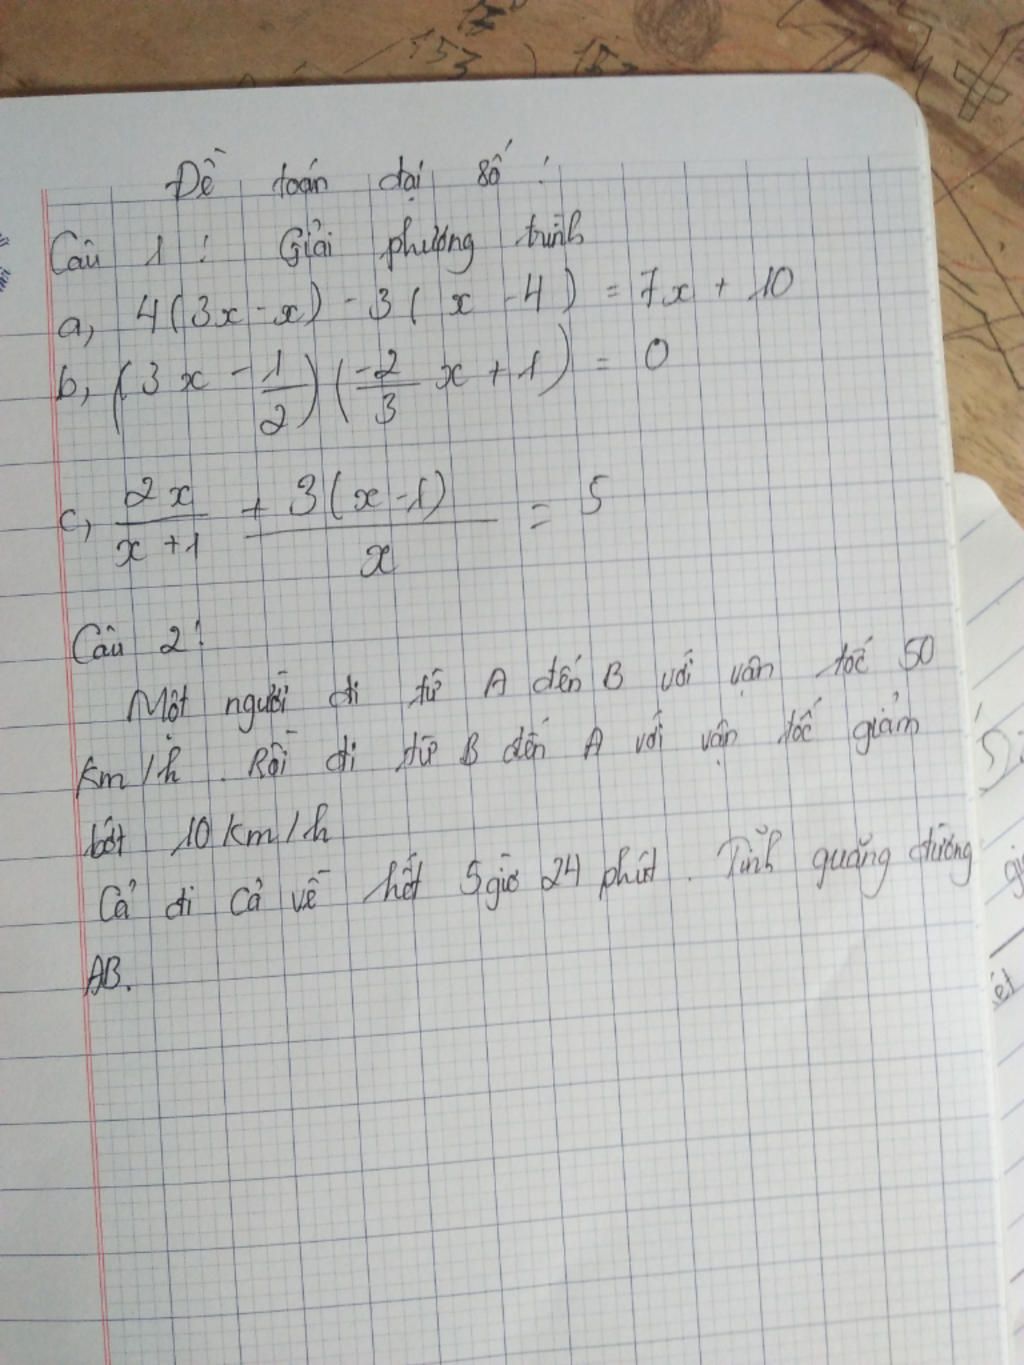 Đề toán đại số :
Câu 1 : Giải phương trình
a, 4(3x - x) - 3( x - 4) = 7x + 10
b, (3x - 1/2)(-2/3 x + 1) = 0
c, 2x/(x + 1) + 3(x - 1)/x = 5
Câu 2 :
Một người đi từ A đến B với vận tốc 50
Km/h . Rồi đi từ B đến A với vận tốc giảm
bớt 10 Km/h
Cả đi cả về hết 5 giờ 24 phút . Tính quãng đường
AB.